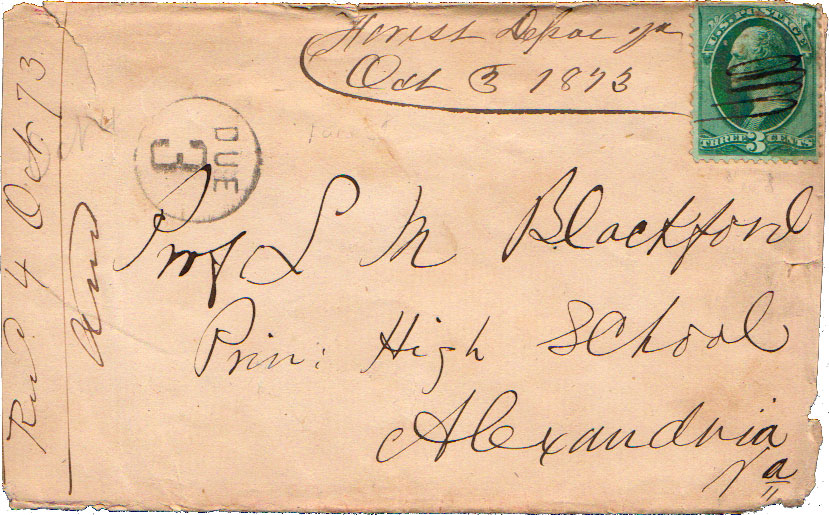 Forest Depot Va
Oct 3 1873
U.S. POSTAGE
THREE 3 CENTS
DUE
3
Prof L M Blackford
Prin: High School
Alexandria
Va
Recd. 4 Oct. 73.